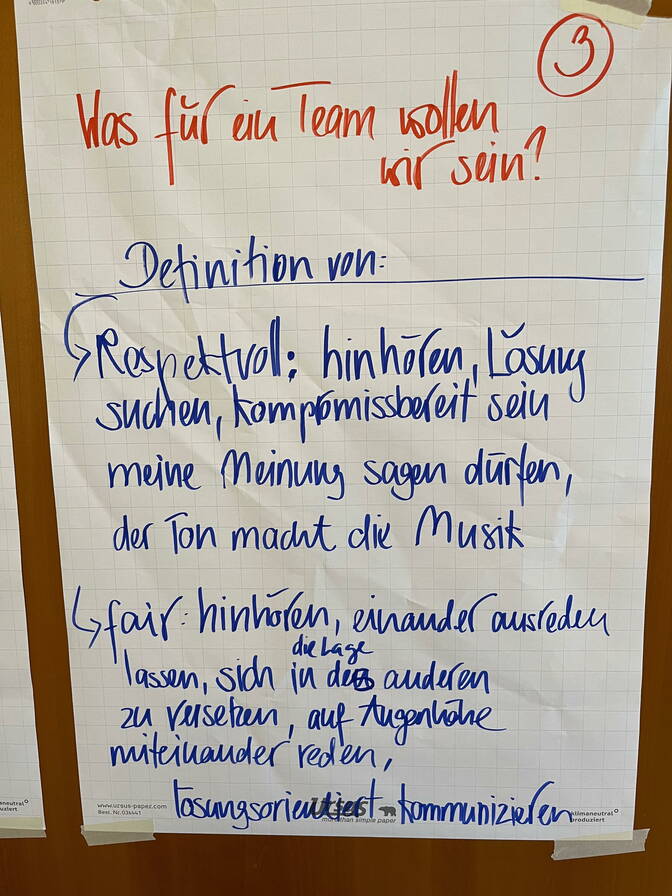 3
Was für ein Team wollen
wir sein?
Definition von:
Respektvoll: hinhören, Lösung
suchen, kompromissbereit sein
meine Meinung sagen dürfen,
der Ton macht die Musik
fair: hinhören, einander ausreden
die Lage
lassen, sich in des anderen
zu versetzen, auf Augenhöhe
miteinander reden,
lösungsorientiert kommunizieren
www.ursus-paper.com
Best. Nr. 034441
ursus
more than simple paper
klimaneutral
produziert
maneutral
uziert